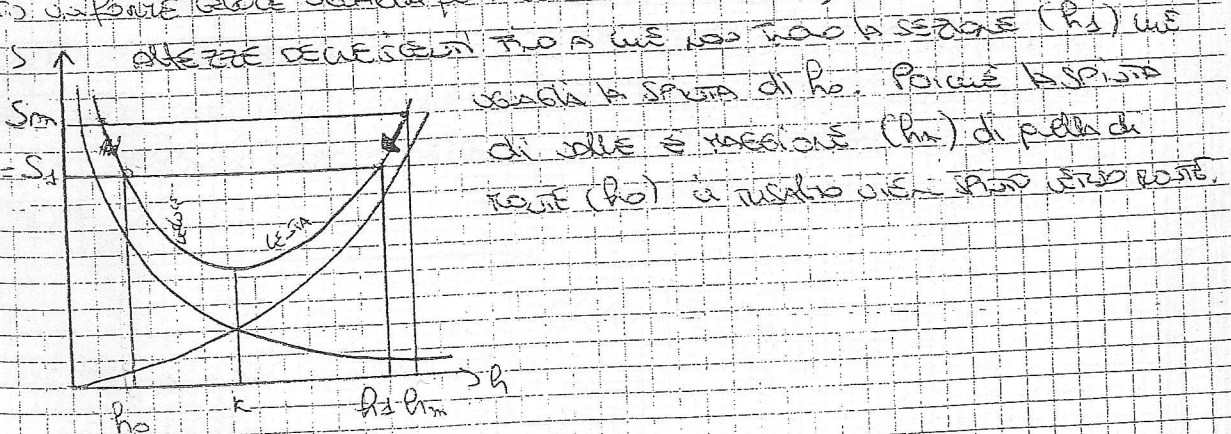 ALTEZZE DECRESCENTI FINO A CHE NON TROVO LA SEZIONE (h1) CHE
UGUAGLIA LA SPINTA di h0. POICHÉ LA SPINTA
di VALLE È MAGGIORE (hm) di quella di
MONTE (h0) il RISALTO VIENE SPINTO VERSO MONTE.
S
Sm
=S1
VELOCE
LENTA
h0
K
h1 hm
h